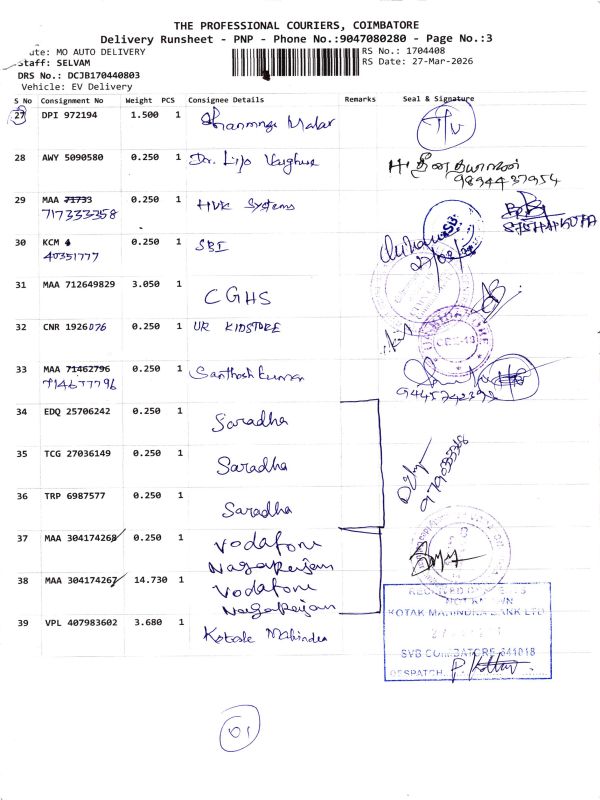 THE PROFESSIONAL COURIERS, COIMBATORE
Delivery Runsheet - PNP - Phone No.:9047080280 - Page No.:3
ute: MO AUTO DELIVERY
Staff: SELVAM
DRS No.: DCJB170440803
Vehicle: EV Delivery
RS No.: 1704408
RS Date: 27-Mar-2026
S No Consignment No Weight PCS Consignee Details Remarks Seal & Signature
27 DPI 972194 1.500 1
28 AWY 5090580 0.250 1 Dr. Lijo
9894437954
29 MAA 71733 0.250 1 HVK Systems
717333358
30 KCM 0.250 1 SBI
40351777
31 MAA 712649829 3.050 1 CGHS
32 CNR 1926076 0.250 1 UR KIDSTORE
33 MAA 71462796 0.250 1 Santhosh Kumar
714677796
9445742392
34 EDQ 25706242 0.250 1 Saradha
35 TCG 27036149 0.250 1 Saradha
36 TRP 6987577 0.250 1 Saradha
37 MAA 304174268 0.250 1 Vodafone
Nagarajan
38 MAA 304174267 14.730 1 Vodafone
Nagarajan
39 VPL 407983602 3.680 1 Kotak Mahindra
KOTAK MAHINDRA BANK LTD
SVB COIMBATORE-641018
DESPATCH
01